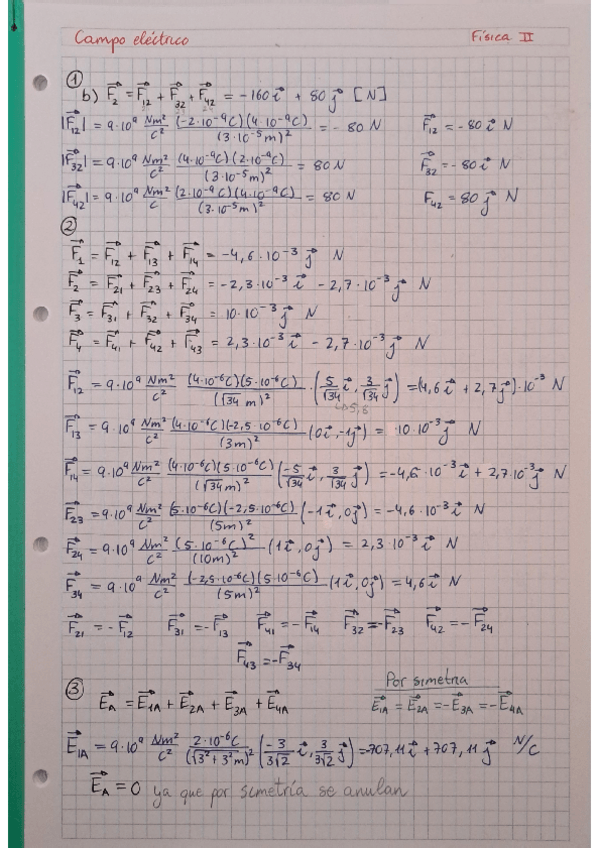 Campo eléctrico Física II
①
b) F⃗₂ = F⃗₁₂ + F⃗₃₂ + F⃗₄₂ = -160 i⃗ + 80 j⃗ [N]
|F⃗₁₂| = 9·10⁹ Nm²/C² (-2·10⁻⁹C)(4·10⁻⁹C)/(3·10⁻⁵m)² = -80 N F⃗₁₂ = -80 i⃗ N
|F⃗₃₂| = 9·10⁹ Nm²/C² (4·10⁻⁹C)(2·10⁻⁹C)/(3·10⁻⁵m)² = 80 N F⃗₃₂ = -80 i⃗ N
|F⃗₄₂| = 9·10⁹ Nm²/C (2·10⁻⁹C)(4·10⁻⁹C)/(3·10⁻⁵m)² = 80 N F₄₂ = 80 j⃗ N
②
F⃗₁ = F⃗₁₂ + F⃗₁₃ + F⃗₁₄ = -4,6·10⁻³ j⃗ N
F⃗₂ = F⃗₂₁ + F⃗₂₃ + F⃗₂₄ = -2,3·10⁻³ i⃗ - 2,7·10⁻³ j⃗ N
F⃗₃ = F⃗₃₁ + F⃗₃₂ + F⃗₃₄ = 10·10⁻³ j⃗ N
F⃗₄ = F⃗₄₁ + F⃗₄₂ + F⃗₄₃ = 2,3·10⁻³ i⃗ - 2,7·10⁻³ j⃗ N
F⃗₁₂ = 9·10⁹ Nm²/C² (4·10⁻⁶C)(5·10⁻⁶C)/(√34 m)² · (5/√34 i⃗, 3/√34 j⃗) = (4,6 i⃗ + 2,7 j⃗)·10⁻³ N
F⃗₁₃ = 9·10⁹ Nm²/C² (4·10⁻⁶C)(-2,5·10⁻⁶C)/(3m)² (0i⃗, -1j⃗) = 10·10⁻³ j⃗ N
F⃗₁₄ = 9·10⁹ Nm²/C² (4·10⁻⁶C)(5·10⁻⁶C)/(√34 m)² (-5/√34 i⃗, 3/√34 j⃗) = -4,6·10⁻³ i⃗ + 2,7·10⁻³ j⃗ N
F⃗₂₃ = 9·10⁹ Nm²/C² (5·10⁻⁶C)(-2,5·10⁻⁶C)/(5m)² (-1i⃗, 0j⃗) = -4,6·10⁻³ i⃗ N
F⃗₂₄ = 9·10⁹ Nm²/C² (5·10⁻⁶C)²/(10m)² (1i⃗, 0j⃗) = 2,3·10⁻³ i⃗ N
F⃗₃₄ = 9·10⁹ Nm²/C² (-2,5·10⁻⁶C)(5·10⁻⁶C)/(5m)² (1i⃗, 0j⃗) = 4,6 i⃗ N
F⃗₂₁ = -F⃗₁₂ F⃗₃₁ = -F⃗₁₃ F⃗₄₁ = -F⃗₁₄ F⃗₃₂ = -F⃗₂₃ F⃗₄₂ = -F⃗₂₄
F⃗₄₃ = -F⃗₃₄
③ Por simetria
E⃗A = E⃗1A + E⃗2A + E⃗3A + E⃗4A E⃗1A = E⃗2A = -E⃗3A = -E⃗4A
E⃗1A = 9·10⁹ Nm²/C² 2·10⁻⁶C/(√3²+3² m)² (-3/3√2 i⃗, 3/3√2 j⃗) = -707,11 i⃗ + 707,11 j⃗ N/C
E⃗A = 0 ya que por simetría se anulan